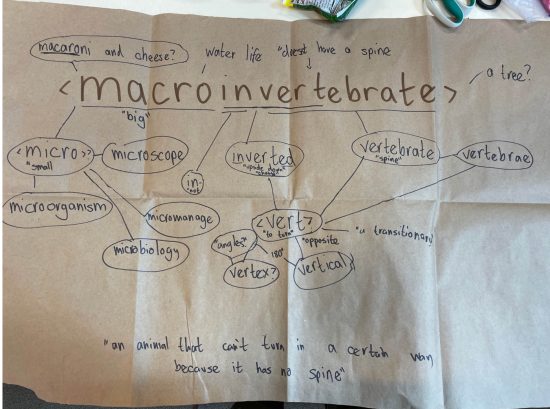 macaroni and cheese?
water life
"doesn't have a spine
a tree?
<macroinvertebrate>
"big"
<micro>?
"small
microscope
inverted
"upside down"
vertebrate
"spine"
vertebrae
in-
microorganism
micromanage
microbiology
<vert>
"to turn"
"opposite
"a transitionary
angles?
180°
vertex?
vertical
"an animal that can't turn in a certain way
because it has no spine"